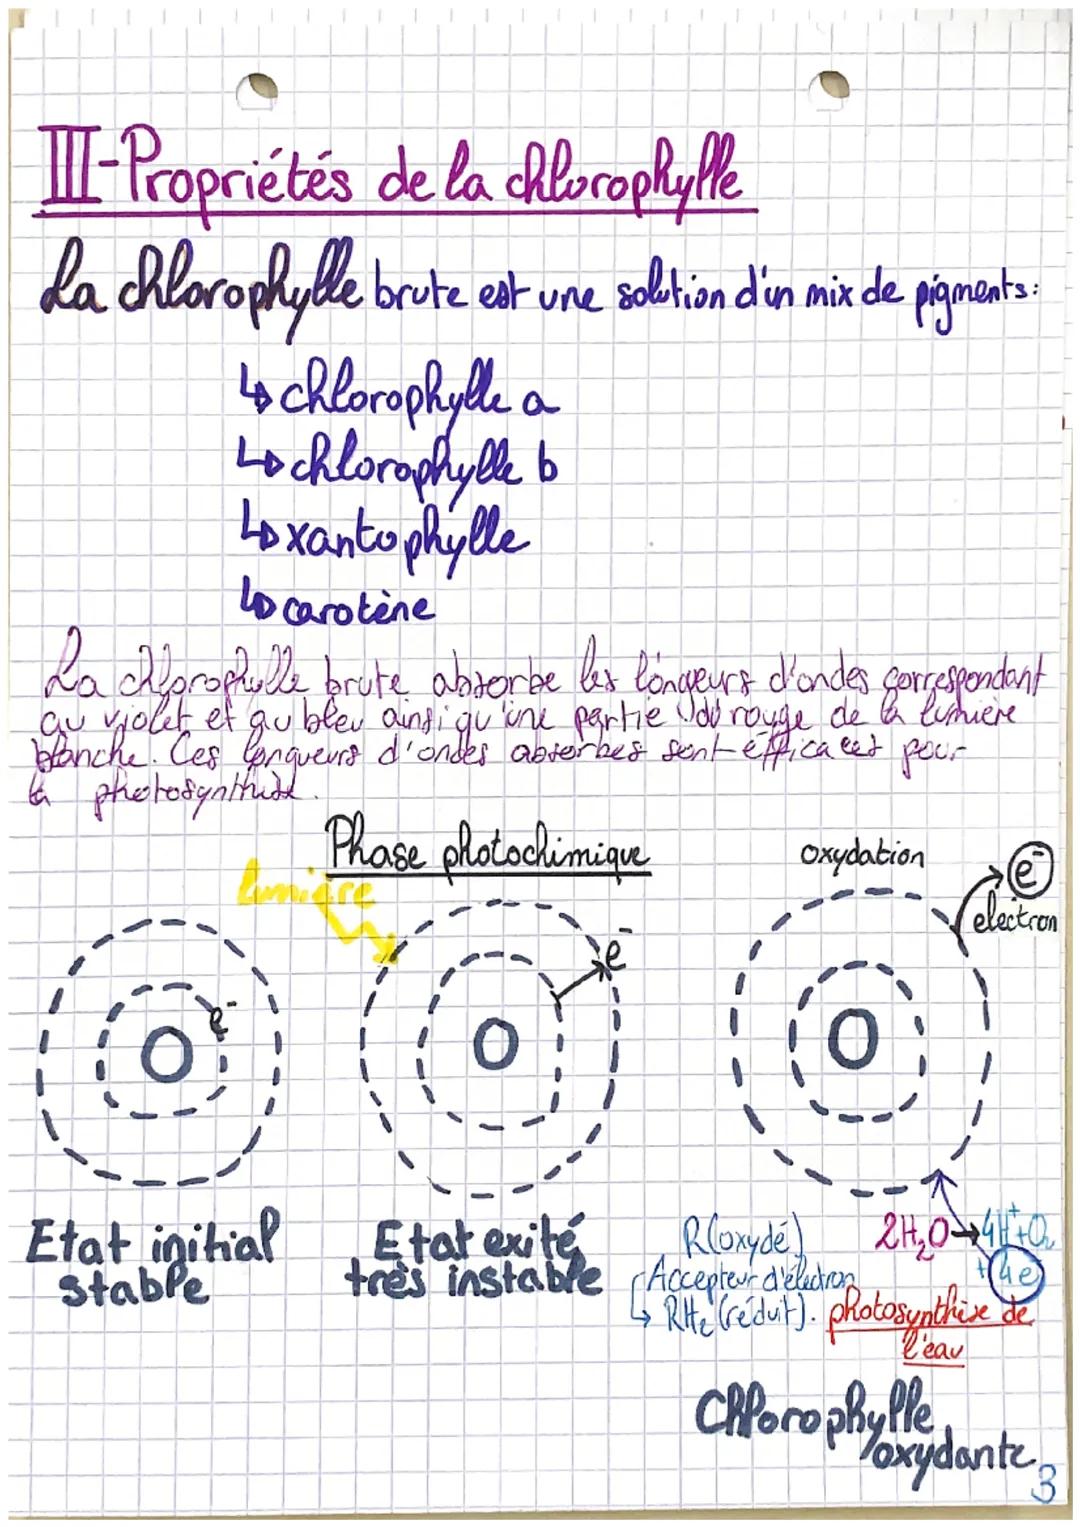 III-Propriétés de la chlorophylle
La chlorophylle brute est une solution d'un mix de pigments:
↳ chlorophylle a
↳ chlorophylle b
↳ xantophylle
↳ carotène
La chlorophylle brute absorbe les longueurs d'ondes correspondant
au violet et au bleu ainsi qu'une partie du rouge de la lumière
blanche. Ces longueurs d'ondes absorbes sont efficaces pour
la photosynthèse.
Phase photochimique
oxydation
lumière
e⁻
electron
e⁻
e⁻
Etat initial
stable
Etat exité
très instable
R(oxydé)
Accepteur d'électron
↳ RH₂ (réduit).
2H₂O → 4H⁺+O₂
+ 4e⁻
photosynthèse de
l'eau
Chlorophylle
oxydante
3